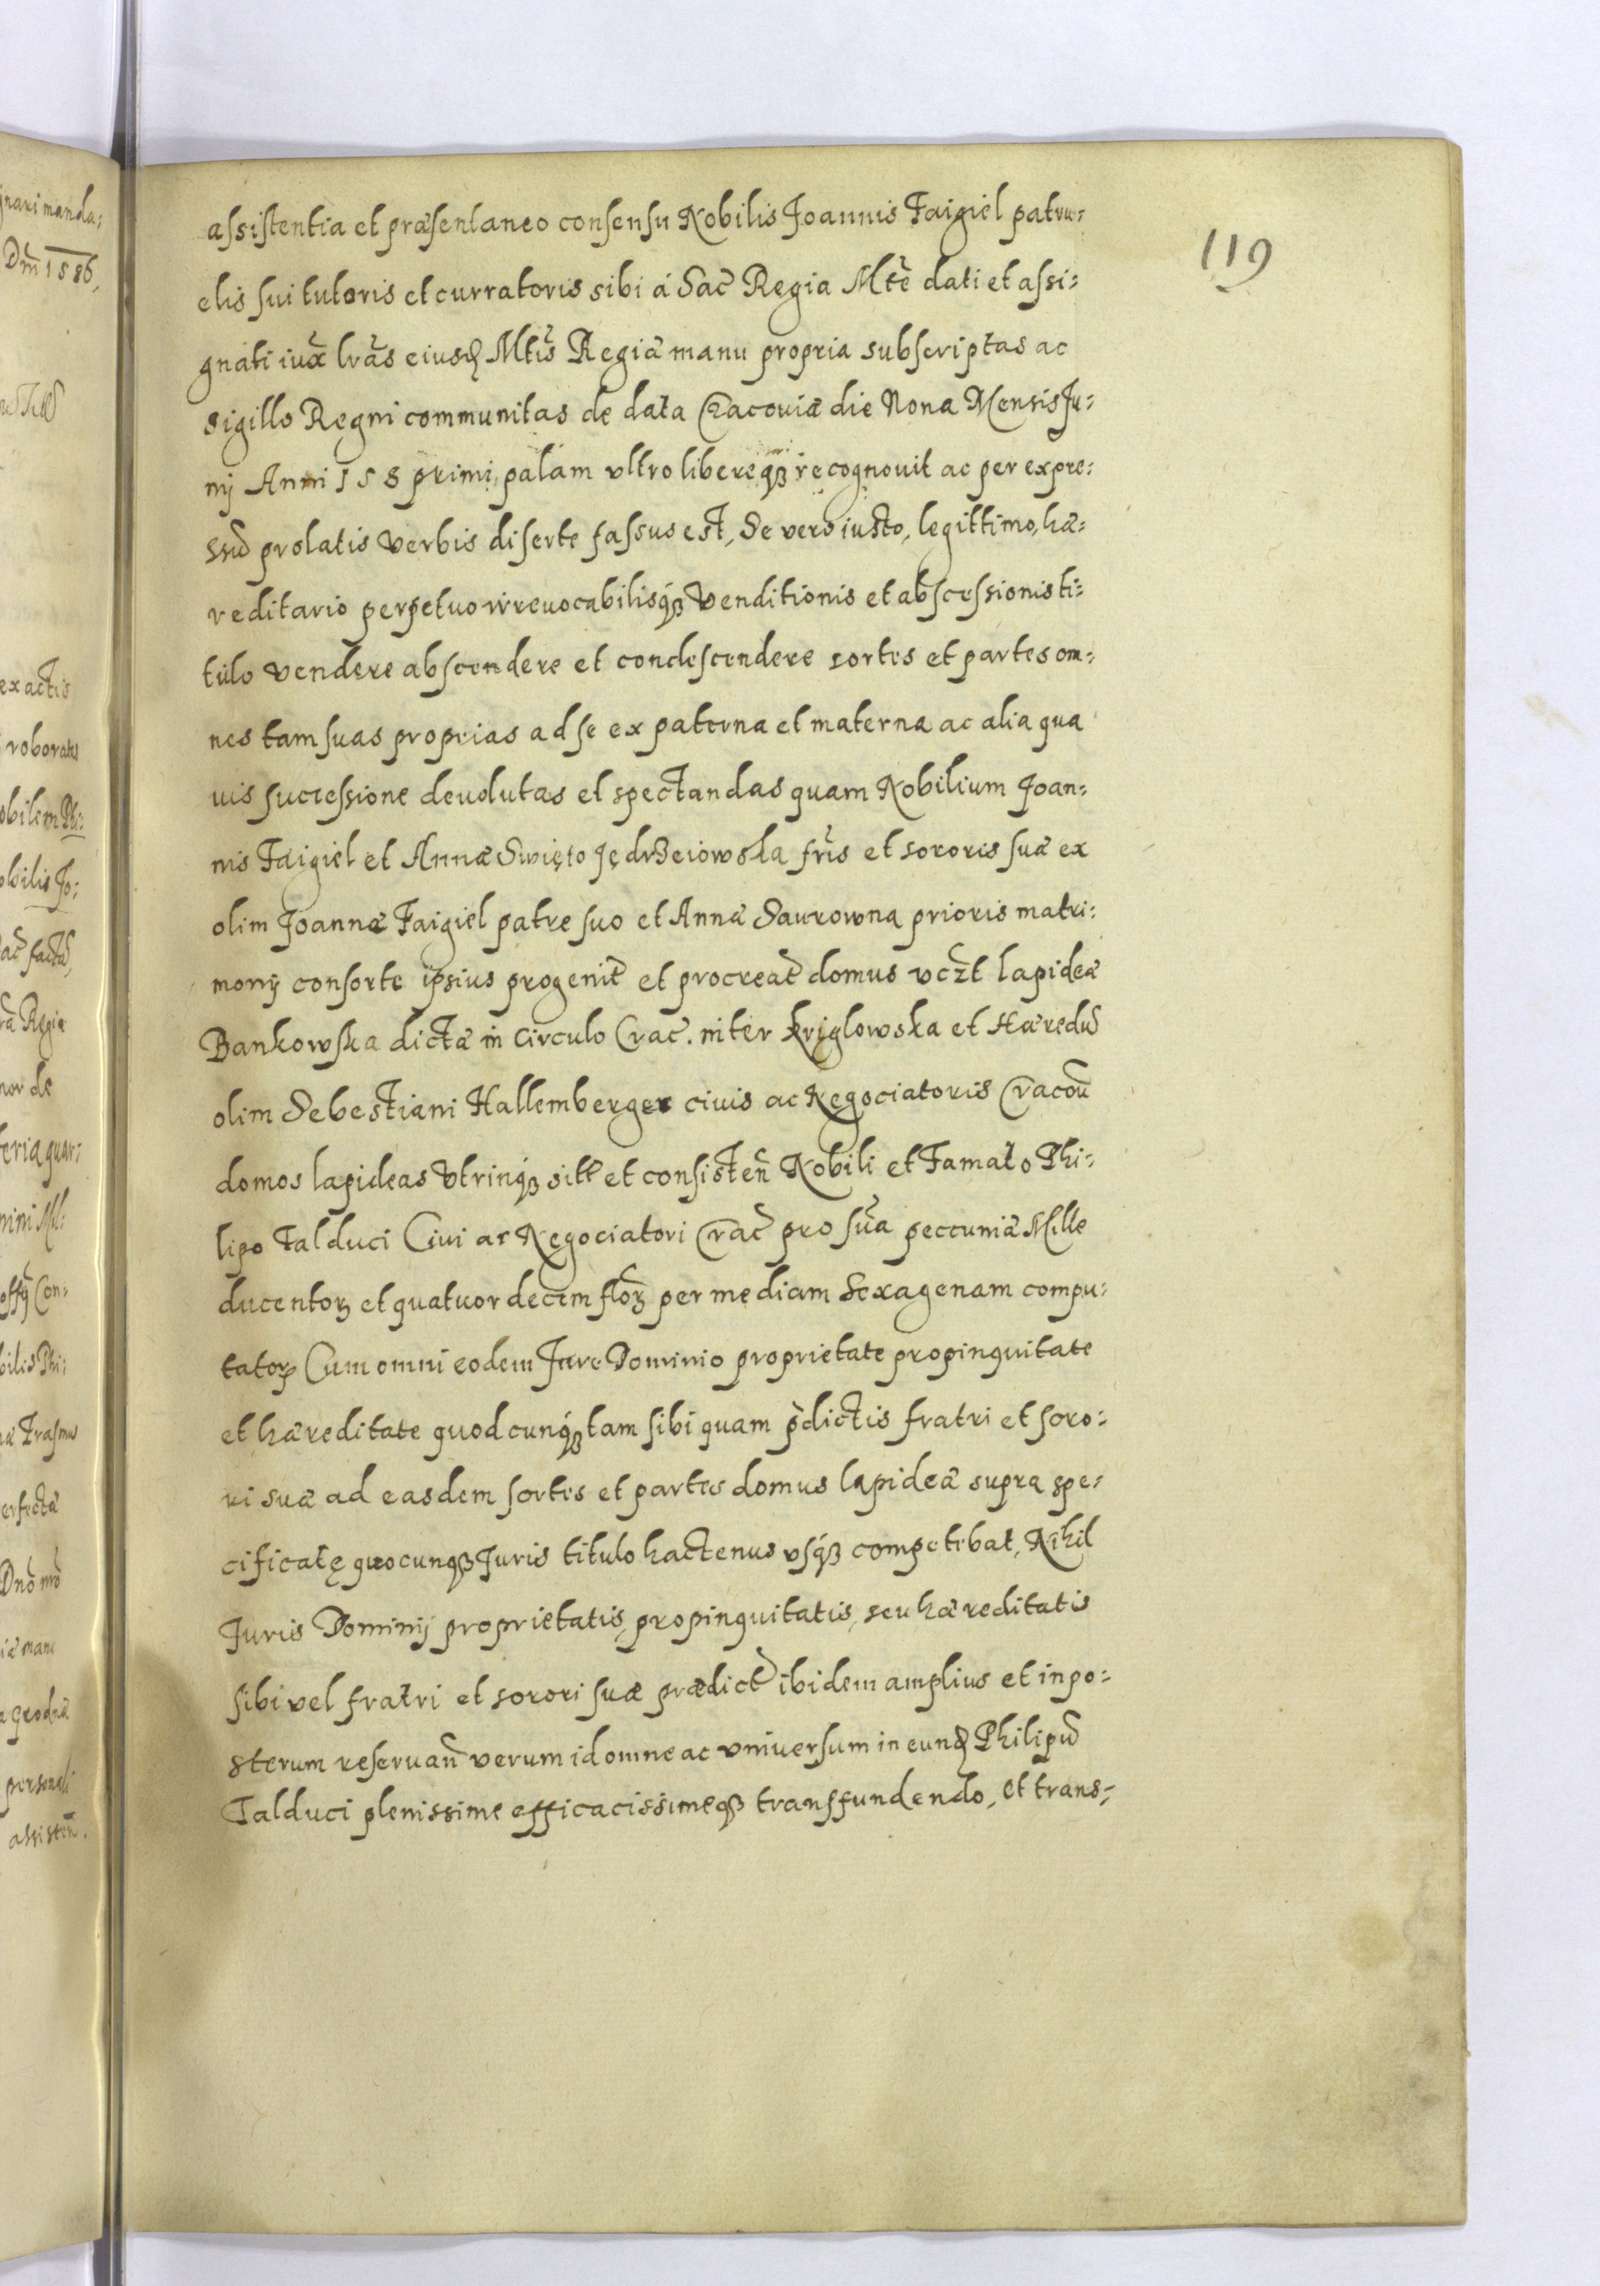 119
assistentia et præsentaneo consensu Nobilis Joannis Faigiel patru-
elis sui tutoris et curratoris sibi á Sac̃ Regia Mtẽ dati et assi-
gnati iux̃ lr̃as eiusdꝫ Mtis̃ Regiæ manu propria subscriptas ac
sigillo Regni communitas de data Cracoviæ die Nona Mensis Ju-
nij Anni 158 primi, palam vltro libereqꝫ recognouit ac per expre-
ssũ prolatis verbis diserte fassus est, Se vero iusto, legittimo, hæ-
reditario perpetuo irreuocabilisqꝫ Venditionis et abscessionis ti-
tulo vendere abscendere et condescendere sortes et partes om-
nes tam suas proprias ad se ex paterna et materna ac alia qua
uis successione deuolutas et spectandas quam Nobilium Joan-
nis Faigiel et Annæ Swięto Jędrzeiowska fr̃is et sororis suæ ex
olim Joannæ Faigiel patre suo et Anna Saurowna prioris matri-
monij consorte ipsius progenit̃ et procreat̃ domus vcz̃t lapideæ
Bankowska dictæ in Circulo Crac̃. inter Kriglowska et Hæredũ
olim Sebestiani Hallemberger ciuis ac Negociatoris Cracoũ
domos lapideas Vtrinqꝫ sitt̃ et consisteñ Nobili et Famato Phi-
lipo Talduci Ciui ac Negociatori Crac̃ pro sũa peccuniæ Mille
ducentoꝝ et quatuor decem flõꝝ per mediam Sexagenam compu-
tatoꝝ Cum omni eodem Jure Dominio proprietate propinquitate
et hæreditate quodcunqꝫ tam sibi quam p̃dictis fratri et soro-
ri suæ ad easdem sortes et partes domus lapideæ supra spe-
cificatę quocunqꝫ Juris titulo hactenus vsqꝫ competebat, Nihil
Juris Dominij proprietatis, propinquitatis, seu hæreditatis
sibi vel fratri et sorori suæ prædict̃ ibidem amplius et in po-
sterum reseruañ verum id omne ac vniuersum in eundꝫ Philipũ
Talduci plenissime efficacissimeqꝫ transfundendo, et trans-